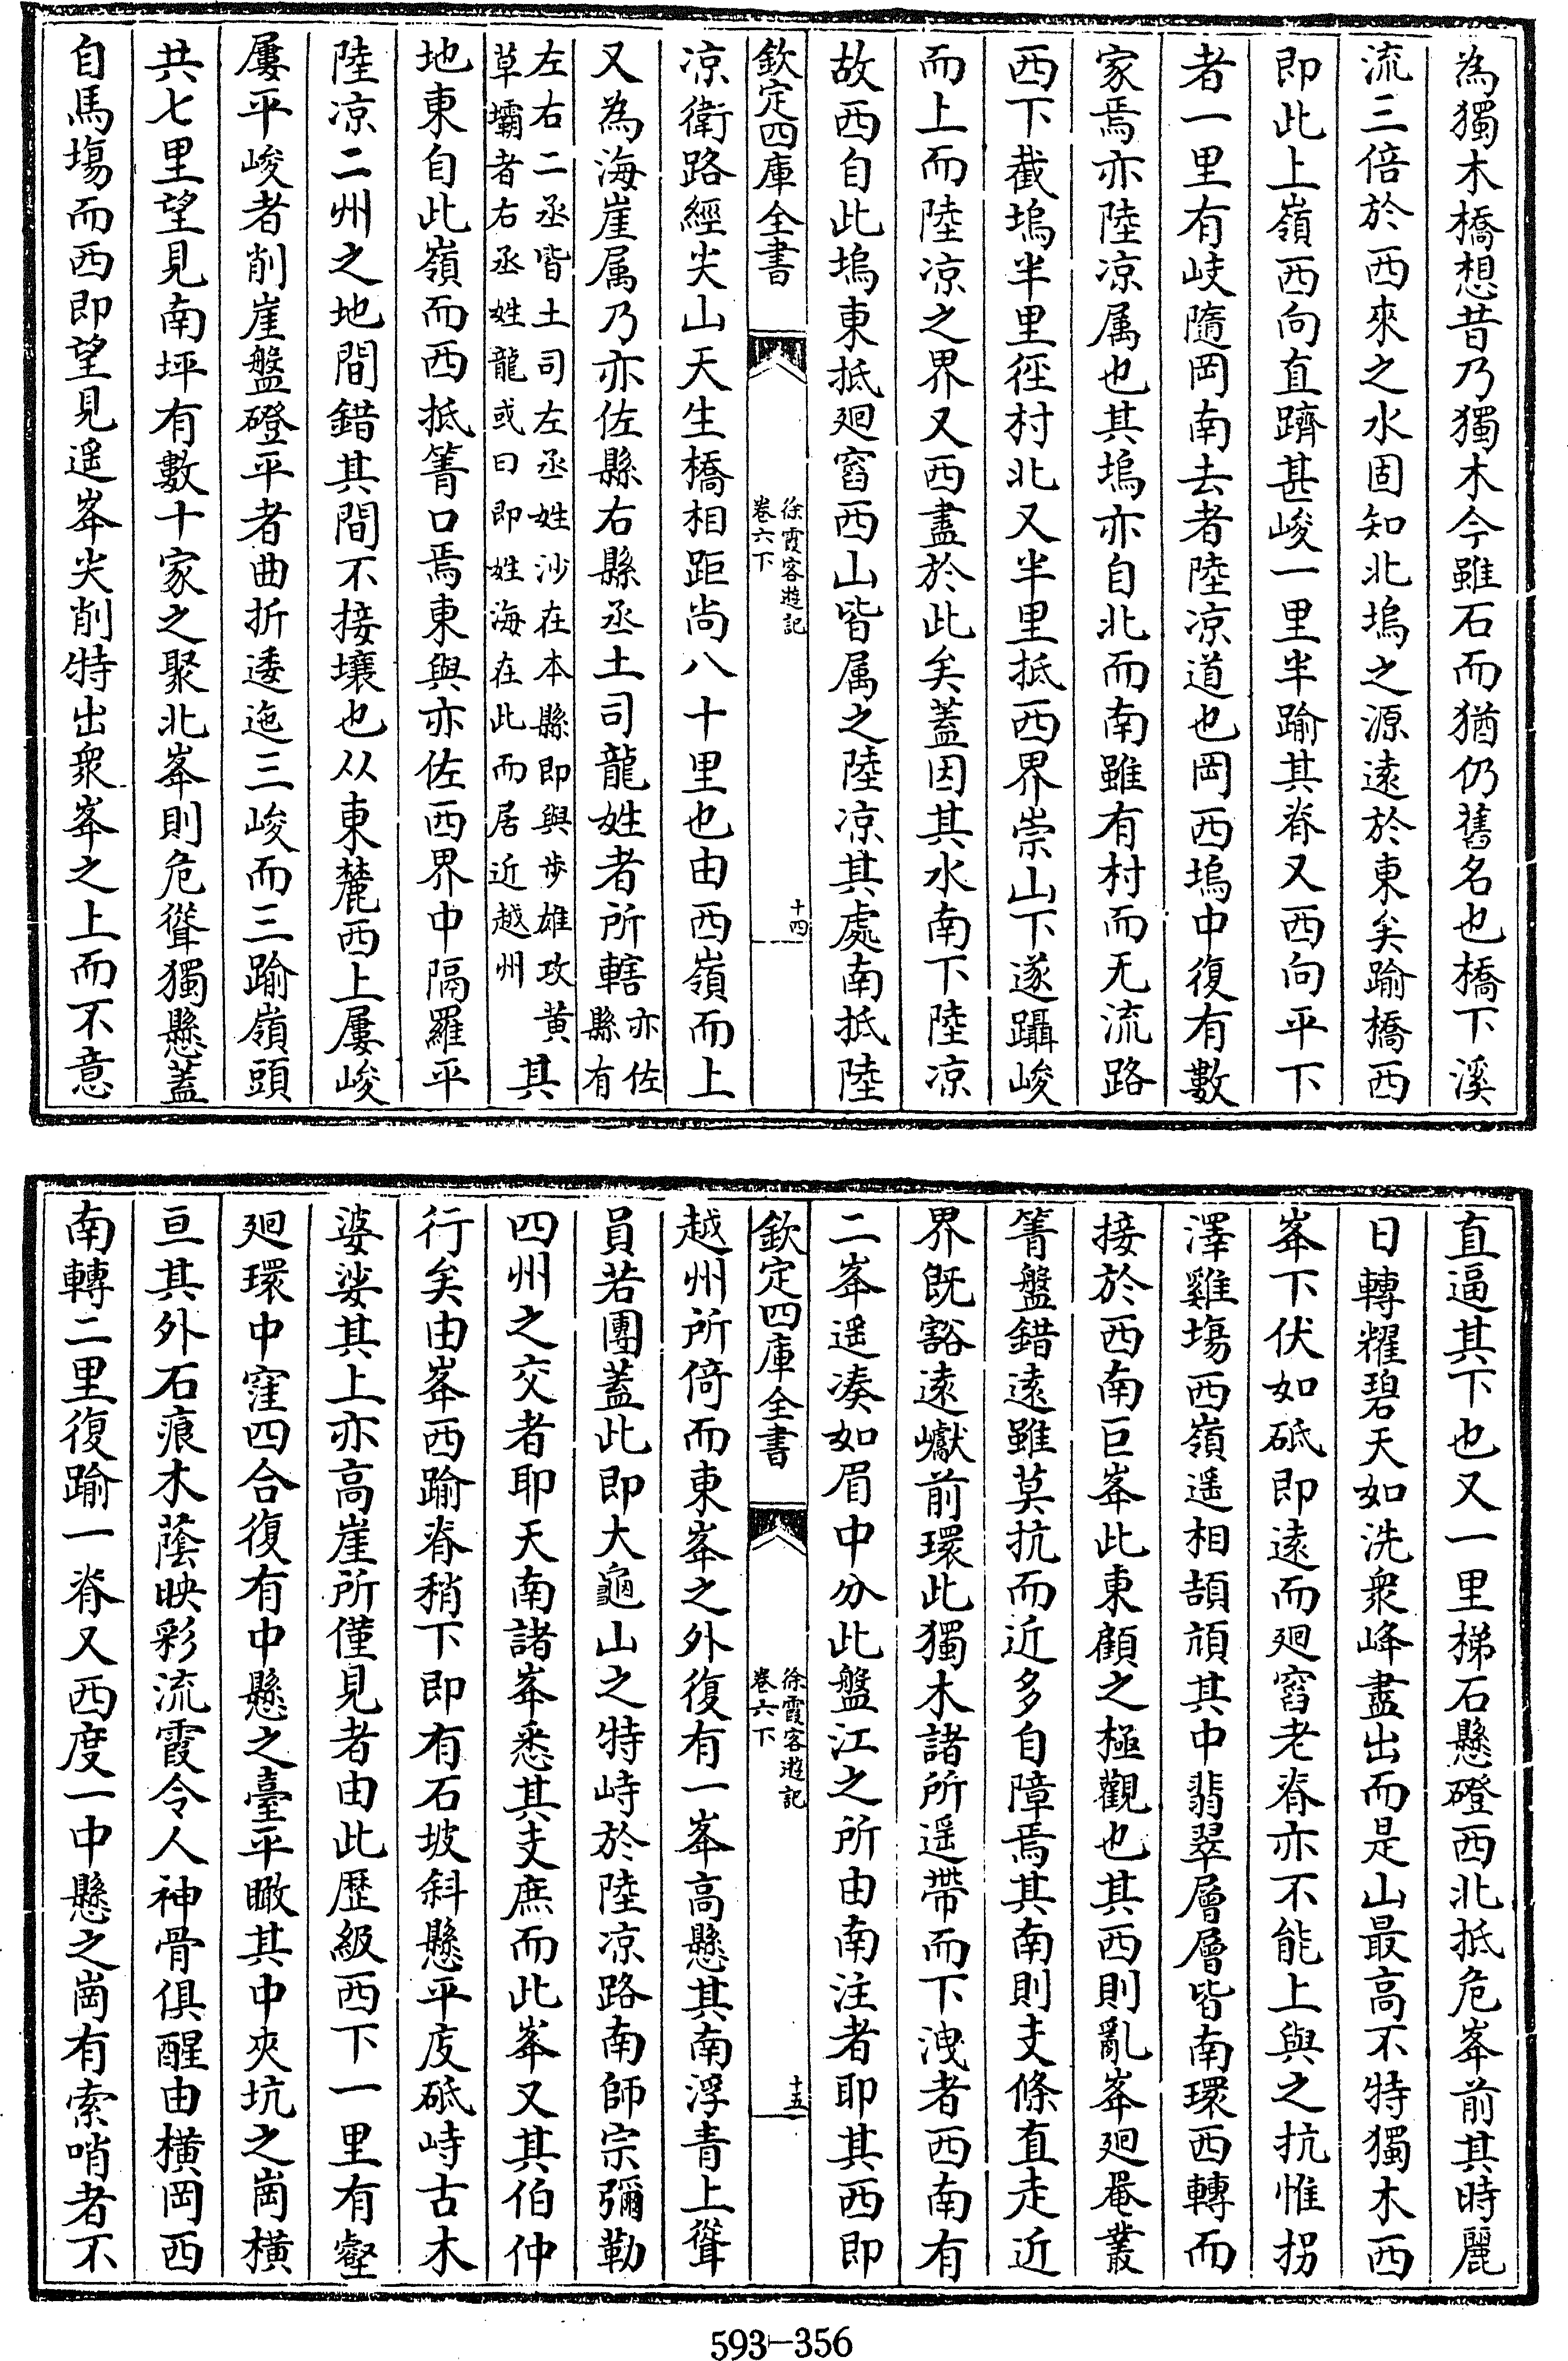 為獨木橋想昔乃獨木今雖石而猶仍舊名也橋下溪
流三倍於西來之水固知北塢之源遠於東矣踰橋西
即此上嶺西向直躋甚峻一里半踰其脊又西向平下
者一里有岐隨岡南去者陸凉道也岡西塢中復有數
家焉亦陸凉属也其塢亦自北而南雖有村而无流路
西下截塢半里徑村北又半里抵西界崇山下遂躡峻
而上而陸凉之界又西盡於此矣蓋因其水南下陸凉
故西自此塢東抵廻窞西山皆属之陸凉其處南抵陸
欽定四庫全書
徐霞客遊記
卷六下
十四
凉衛路經尖山天生橋相距尚八十里也由西嶺而上
又為海崖属乃亦佐縣右縣丞土司龍姓者所轄亦佐
縣有
左右二丞皆土司左丞姓沙在本縣即與步雄攻黄
草壩者右丞姓龍或曰即姓海在此而居近越州
其
地東自此嶺而西抵箐口焉東與亦佐西界中隔羅平
陸凉二州之地間錯其間不接壤也从東麓西上屢峻
屢平峻者削崖盤磴平者曲折逶迤三峻而三踰嶺頭
共七里望見南坪有數十家之聚北峯則危聳獨懸蓋
自馬塲而西即望見遥峯尖削特出衆峯之上而不意
直逼其下也又一里梯石懸磴西北抵危峯前其時麗
日轉耀碧天如洗衆峰盡出而是山最高不特獨木西
峯下伏如砥即遠而廻窞老脊亦不能上與之抗惟拐
澤雞塲西嶺遥相頡頏其中翡翠層層皆南環西轉而
接於西南巨峯此東顧之極觀也其西則亂峯廻罨叢
箐盤錯遠雖莫抗而近多自障焉其南則支條直走近
界既豁遠巘前環此獨木諸所遥帶而下洩者西南有
二峯遥凑如眉中分此盤江之所由南注者耶其西即
欽定四庫全書
徐霞客遊記
卷六下
十五
越州所倚而東峯之外復有一峯高懸其南浮青上聳
員若團蓋此即大龜山之特峙於陸凉路南師宗彌勒
四州之交者耶天南諸峯悉其支庶而此峯又其伯仲
行矣由峯西踰脊稍下即有石坡斜懸平庋砥峙古木
婆娑其上亦高崖所僅見者由此歴級西下一里有壑
廻環中窪四合復有中懸之臺平瞰其中夾坑之崗橫
亘其外石痕木蔭映彩流霞令人神骨俱醒由橫岡西
南轉二里復踰一脊又西度一中懸之崗有索哨者不
593-356